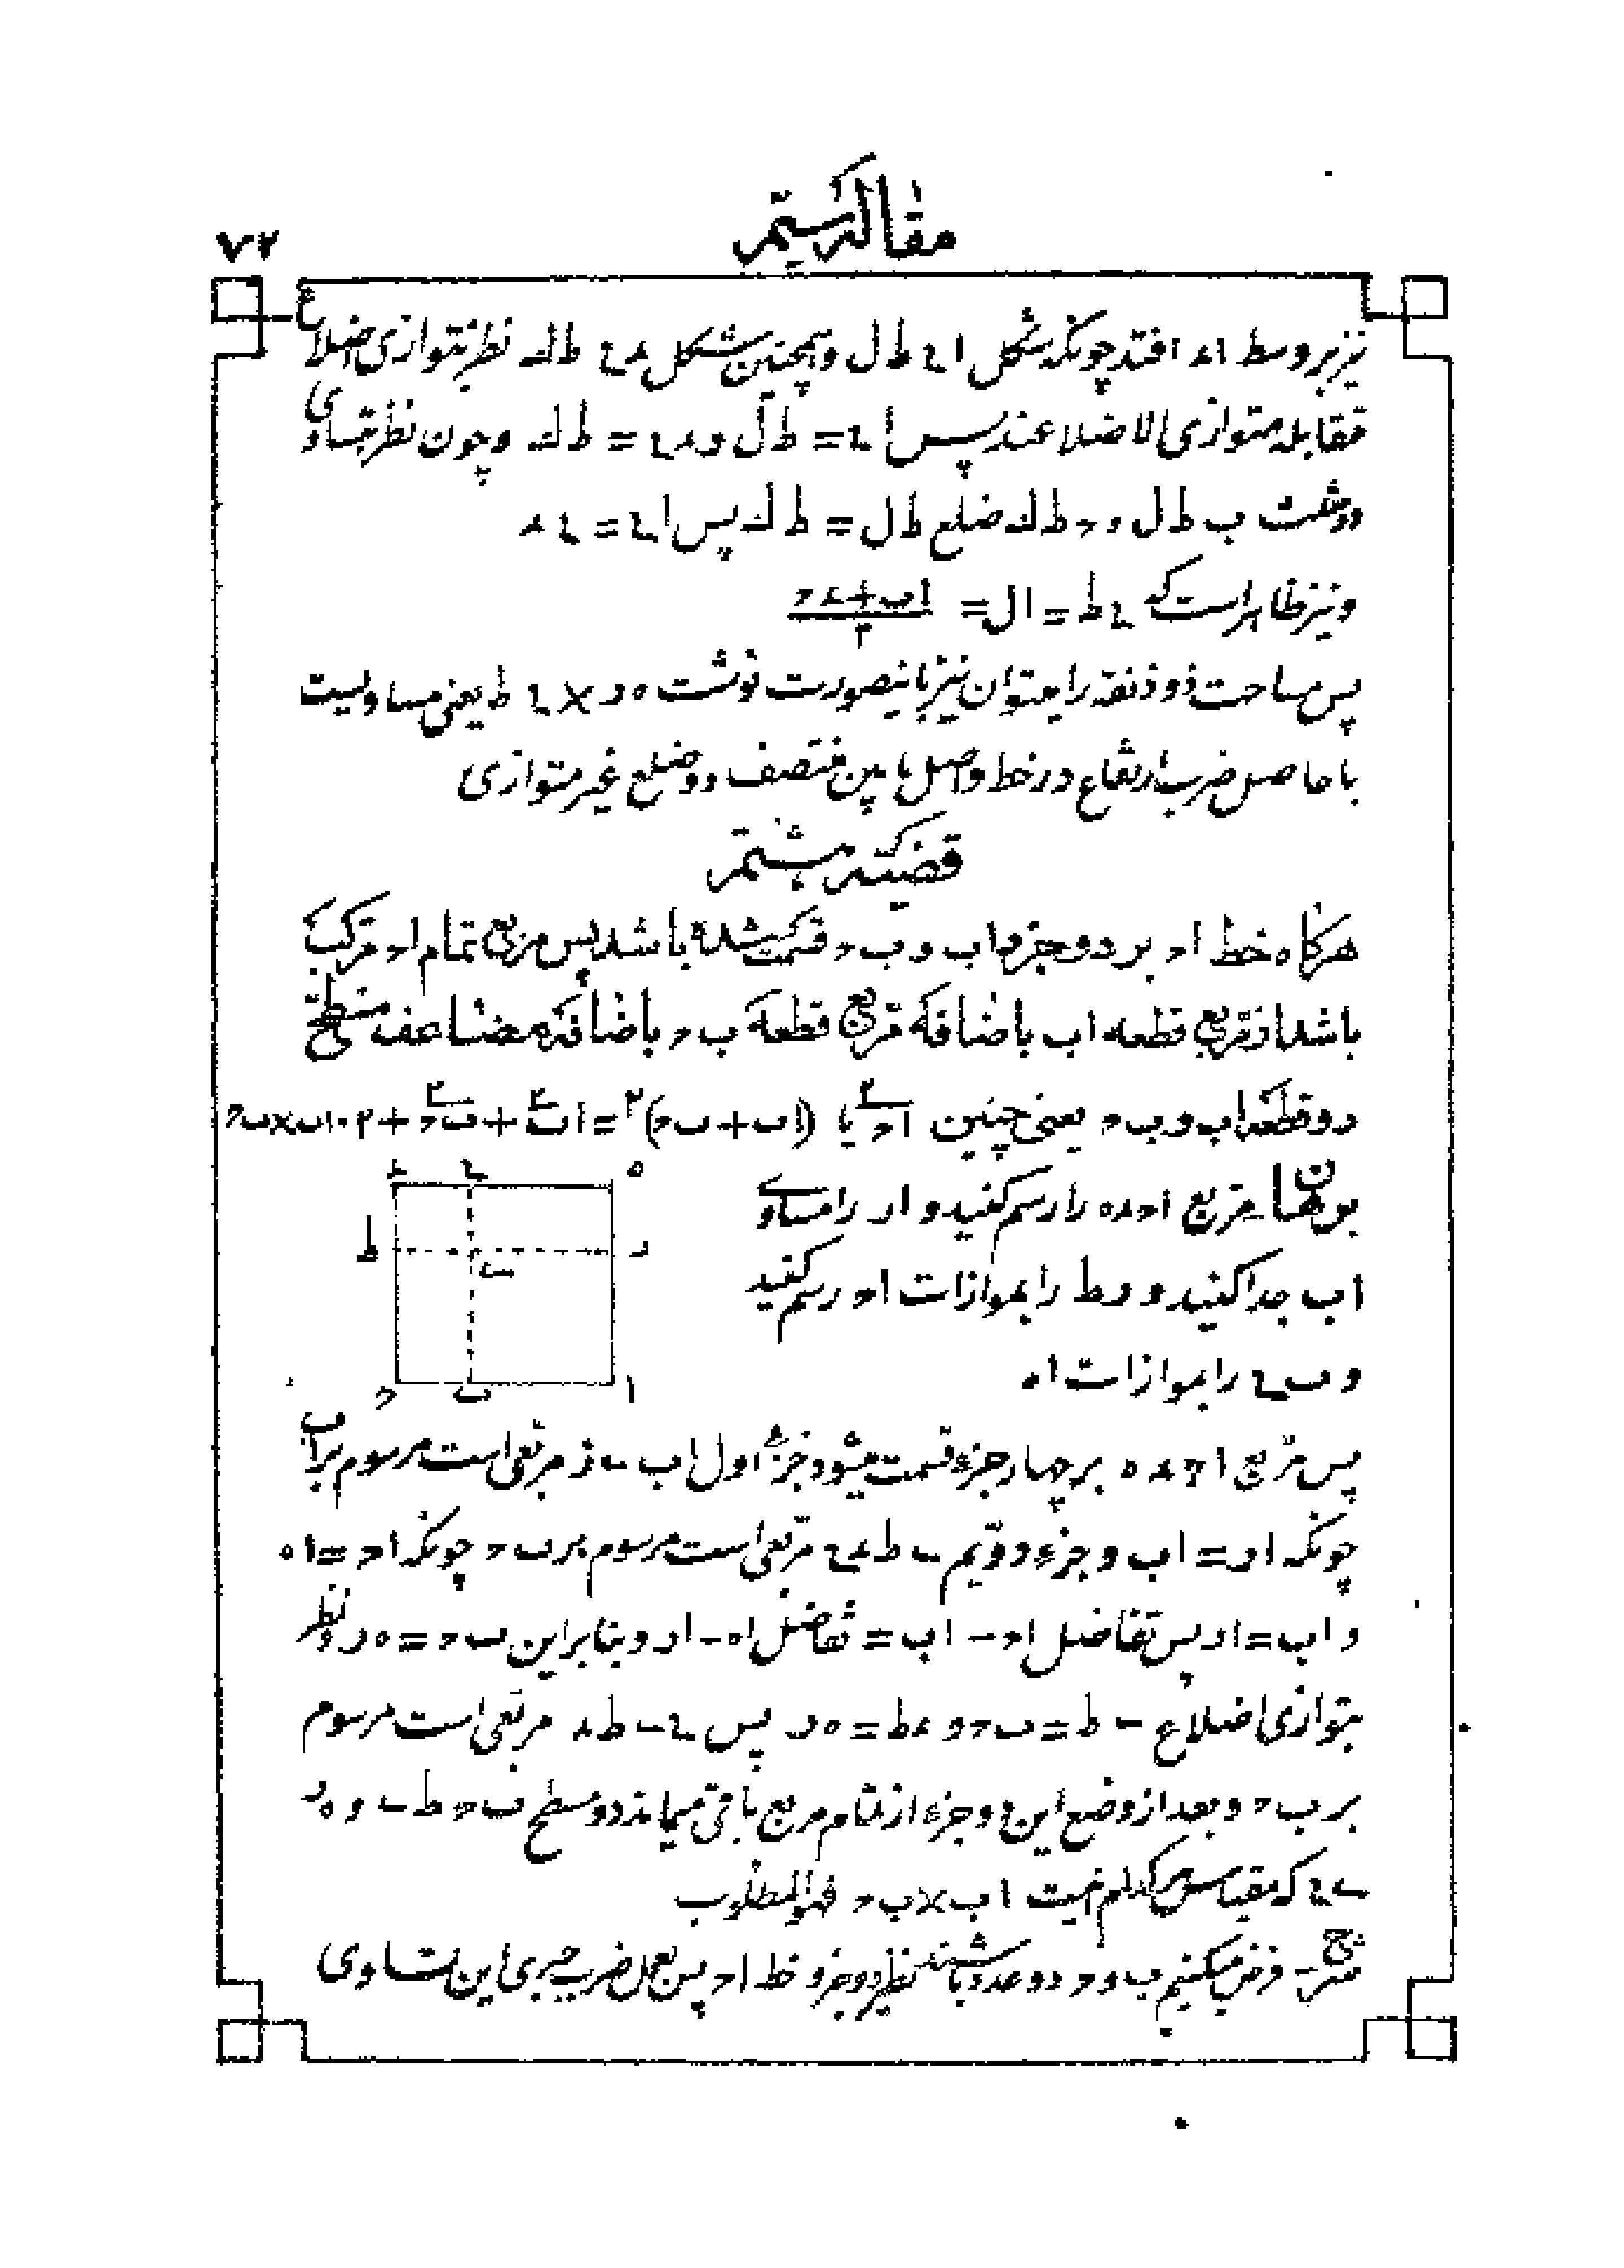 مقالهٔ سیّم
۷۲
نیز بر وسط ا د افتد چونکه شکل ا ع ط ل و همچنین شکل د ع ط ك نظر بتوازی اضلاع
متقابله متوازی الاضلاعند پس ا ع = ط ل و د ع = ط ك و چون نظر بتساوی
دو مثلث ب ط ل و ح ط ك ضلع ط ل = ط ك پس ا ع = ع د
و نیز ظاهر است که ع ط = ا ل = (ا ب + د ح)/۲
پس مساحت ذو ذنقه را میتوان نیز باینصورت نوشت ه ر × ع ط یعنی مساویست
با حاصل ضرب ارتفاع در خط واصل ما بین منتصف دو ضلع غیر متوازی
قضیّهٔ هشتم
هرگاه خط ا ح بر دو جزء ا ب و ب ح قسمت شده باشد پس مربع تمام ا ح مرکّب
باشد از مربّع قطعه ا ب باضافهٔ مربّع قطعهٔ ب ح باضافهٔ مضاعف مسطّح
دو قطعهٔ ا ب و ب ح یعنی چنین ا ح۲ یا (ا ب + ب ح)۲ = ا ب۲ + ب ح۲ + ۲۰ ا ب × ب ح
برهان مربع ا ح د ه را رسم کنید و ا ر را مساوی
ا ب جدا کنید و ر ط را بموازات ا ح رسم کنید
و ب ع را بموازات ا ه
د ع ه
ط ر
ى
ح ب ا
پس مربّع ا ح د ه بر چهار جزء قسمت میشود جزء اول ا ب ى ز مربّعی است مرسوم بر ا ب
چونکه ا ر = ا ب و جزء دوّیم ى ط د ع مربّعی است مرسوم بر ب ح چونکه ا ح = ا ه
و ا ب = ا ر پس تفاضل ا ح − ا ب = تفاضل ا ه − ا ر و بنا بر این ب ح = ه ر و نظر
بتوازی اضلاع ى ط = ب ح و د ط = ه ر پس ع ى ط د مربّعی است مرسوم
بر ب ح و بعد از وضع این دو جزء از تمام مربع باقی میماند دو سطح ب ح ط ى و ه ر
ى ع که مقیاس هر کدام نیست ا ب × ب ح فهو المطلوب
شرح – فرض میکنیم ب و ح دو عدد باشند نظیر دو جزو خط ا ح پس بعمل ضرب جبری این تساوی